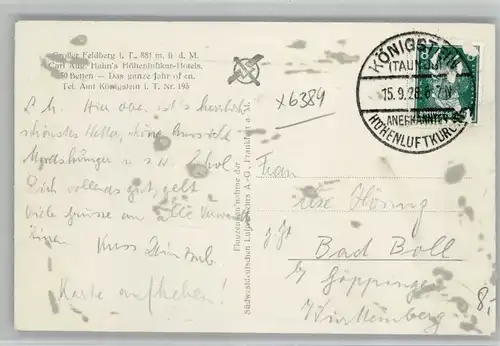 Großer Feldberg i. T., 881 m. ü. d. M.
Carl Aug. Hahn's Höhenluftkur-Hotels.
50 Betten — Das ganze Jahr offen.
Tel. Amt Königstein i. T. Nr. 195
x6384
L. M. Hier oben ist's herrlich
schönstes Wetter, schöne Aussicht
Mordshunger u. s. w. Erhol
Dich vollends gut, gell
Viele Grüsse an alle
Kuss
Karte aufheben!
Flugzeugaufnahme der
Südwestdeutschen Luftverkehrs A.-G., Frankfurt a. M.
KÖNIGSTEIN
(TAUNUS)
15.9.28. 6-7N
ANERKANNTER
HÖHENLUFTKURORT
Frau
z. Zt.
Bad Boll
b/ Göppingen
Württemberg
8,